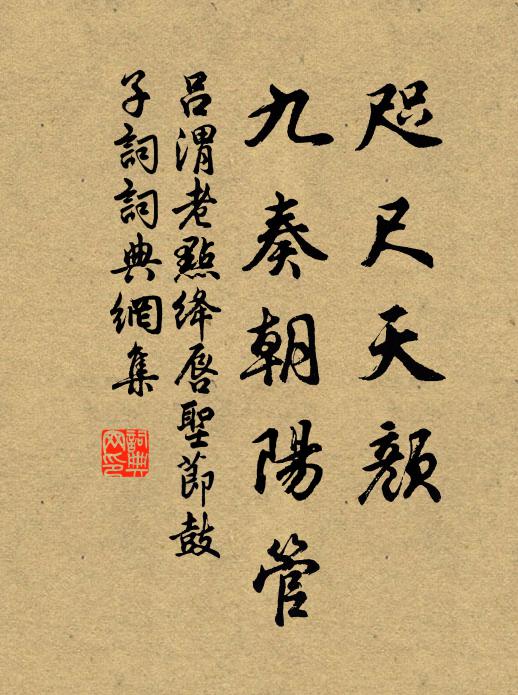 咫尺天顏
九奏朝陽管
呂渭老點絳唇聖節鼓
子詞詞典網集
詞典
網印